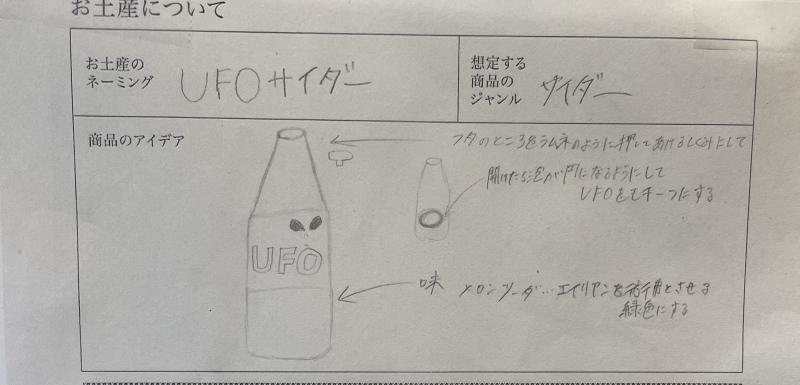 お土産について
お土産の
ネーミング
UFOサイダー
想定する
商品の
ジャンル
サイダー
商品のアイデア
フタのところをラムネのように押してあけるしくみにして
開けたら泡が円になるようにして
UFOをモチーフにする
UFO
味 メロンソーダ…エイリアンを彷彿とさせる
緑色にする